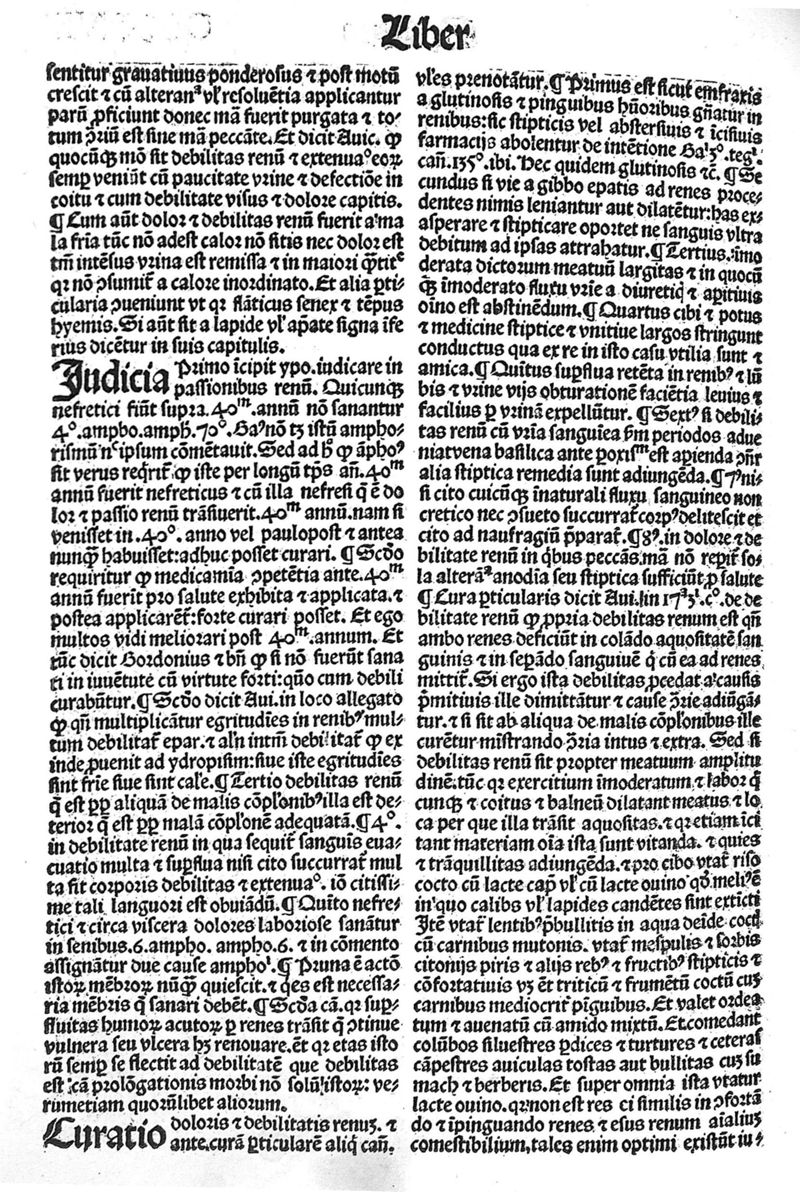 Liber
sentitur grauatiuus ponderosus ⁊ post motũ
crescit ⁊ cũ alteranᵃ vl̕ resoluẽtia applicantur
parũ ꝓficiunt donec mã fuerit purgata ⁊ to⸗
tum ↄ̃riũ est sine mã peccãte. Et dicit Auic. ꝙ
quocũqꝫ mõ sit debilitas renũ ⁊ extenuaᵒ eoꝝ
semꝑ veniũt cũ paucitate vrine ⁊ defectiõe in
coitu ⁊ cum debilitate visus ⁊ dolore capitis.
¶ Cum aũt dolor ⁊ debilitas renũ fuerit a ma
la fr̃ia tũc nõ adest calor nõ sitis nec dolor est
tm̃ intẽsus vrina est remissa ⁊ in maiori q̃titᵉ
qꝛ nõ ↄsumit̃ a calore inordinato. Et alia ꝑti⸗
cularia ↄueniunt vt qꝛ flãticus senex ⁊ tẽpus
hyemis. Si aũt sit a lapide vl̕ ap̃ate signa ĩfe
rius dicẽtur in suis capitulis.
Judicia Primo ĩcipit ypo. iudicare in
passionibus renũ. Quicunqꝫ
nefretici fiũt supra .40ᵐ. annũ nõ sanantur
4ᵒ. ampho. amph. 70ᵒ. Gaꝰ nõ tꝫ istũ ampho⸗
rismũ nᶜ ipsum cõmẽtauit. Sed ad hᵒ ꝙ ãphoꝰ
sit verus reqrit̃ ꝙ iste per longũ tp̃s añ .40ᵐ
annũ fuerit nefreticus ⁊ cũ illa nefresi q̃ ẽ do
lor ⁊ passio renũ trãsiuerit .40ᵐ annũ. nam si
venisset in .40ᵒ. anno vel paulopost ⁊ antea
nunq̃ habuisset: adhuc posset curari. ¶ Scd̃o
requiritur ꝙ medicamĩa ↄpetẽtia ante .40ᵐ
annũ fuerit pro salute exhibita ⁊ applicata. ⁊
postea applicarẽt̃: forte curari posset. Et ego
multos vidi meliorari post 40ᵐ. annum. Et
tũc dicit Gordonius ⁊ bñ ꝙ si nõ fuerũt sana
ti in iuuẽtute cũ virtute forti: quõ cum debili
curabũtur. ¶ Scd̃o dicit Aui. in loco allegato
ꝙ qñ multiplicãtur egritudĩes in renibꝰ mul⸗
tum debilitat̃ epar. ⁊ alñ intm̃ debilitat̃ ꝙ ex
inde ꝓuenit ad ydropisim: siue iste egritudĩes
sint fr̃ie siue sint cal̃e. ¶ Tertio debilitas renũ
q̃ est ꝓpꝑ aliquã de malis cõpl̃onibꝰ illa est de⸗
terior q̃ est ꝓpꝑ malã cõpl̃onẽ adequatã. ¶ 4ᵒ.
in debilitate renũ in qua sequit̃ sanguĩs eua⸗
cuatio multa ⁊ suꝑflua nisi cito succurrat̃ mul
ta fit corporis debilitas ⁊ extenuaᵒ. iõ citissi⸗
me tali languori est obuiãdũ. ¶ Quĩto nefre⸗
tici ⁊ circa viscera dolores laboriose sanãtur
in senibus .6. ampho. ampho. 6. ⁊ in cõmento
assignãtur due cause amphoⁱ. ¶ Pruna ẽ actõ
istoꝝ mẽbroꝝ nũq̃ quiescit. ⁊ q̃es est necessa⸗
ria mẽbris q̃ sanari debẽt. ¶ Scd̃a cã. qꝛ suꝑ⸗
fluitas humoꝝ acutoꝝ ꝑ renes trãsit q̃ ↄtinue
vulnera seu vlcera hꝫ renouare. ẽt qꝛ etas isto
rũ semꝑ se flectit ad debilitatẽ que debilitas
est cã prolõgationis morbi nõ solũ istoꝝ: ve⸗
rumetiam quorũlibet aliorum.
Curatio doloris ⁊ debilitatis renuꝫ. ⁊
ante. curã ꝑticularẽ aliq̃ cañ.
vl̕es prenotãtur. ¶ Primus est sicut emfraxis
a glutinosis ⁊ pinguibus hũoribus gñatur in
renibus: sic stipticis vel abstersiuis ⁊ ĩcisiuis
farmacijs abolentur de intẽtione Gaⁱ 3ᵒ. tegⁱ.
cañ. 135ᵒ. ibi. Hec quidem glutinosis ⁊c̃. ¶ Se
cundus si vie a gibbo epatis ad renes proce⸗
dentes nimis leniantur aut dilatẽtur: has ex⸗
asperare ⁊ stipticare oportet ne sanguis vltra
debitum ad ipsas attrahatur. ¶ Tertius. ĩmo
derata dictorum meatuũ largitas ⁊ in quocũ
qꝫ ĩmoderato fluxu vrĩe a diuretiq̃ ⁊ aꝑitiuis
oĩno est abstinẽdum. ¶ Quartus cibi ⁊ potus
⁊ medicine stiptice ⁊ vnitiue largos stringunt
conductus qua ex re in isto casu vtilia sunt ⁊
amica. ¶ Quĩtus suꝑflua retẽta in renibꝰ ⁊ lũ
bis ⁊ vrine vijs obturationẽ faciẽtia leuius ⁊
facilius ꝑ vrinã expellũtur. ¶ Sextꝰ si debili⸗
tas renũ cũ vrĩa sanguĩea ẜm periodos adue
niat vena basilica ante ꝑoxisᵐ est aꝑienda ↄñr
alia stiptica remedia sunt adiungẽda. ¶ 7ꝰ ni⸗
si cito cuicũqꝫ ĩnaturali fluxu sanguineo non
cretico nec ↄsueto succurrat̃ corpꝰ delitescit et
cito ad naufragiũ p̃parat̃. ¶ 8ꝰ. in dolore ⁊ de
bilitate renũ in q̃bus peccãs. mã nõ reꝑit̃ so⸗
la alterãᵃ anodia seu stiptica sufficiũt ꝓ salute
¶ Cura ꝑticularis dicit Aui. lin 17ᵃ 3ⁱ. cᵒ. de de
bilitate renũ ꝙ ꝓpria debilitas renum est qñ
ambo renes deficiũt in colãdo aquositatẽ san
guinis ⁊ in seꝑãdo sanguiuẽ q̃ cũ ea ad renes
mittit̃. Si ergo ista debilitas ꝓcedat a causis
p̃mitiuis ille dimittãtur ⁊ cause ↄ̃rie adiũgã⸗
tur. ⁊ si sit ab aliqua de malis cõpl̃onibus ille
curẽtur mĩstrando ↄ̃ria intus ⁊ extra. Sed si
debilitas renũ sit propter meatuum amplitu
dinẽ: tũc qꝛ exercitium ĩmoderatum ⁊ labor q̃
cunqꝫ ⁊ coitus ⁊ balneũ dilatant meatus ⁊ lo
ca per que illa trãsit aquositas. ⁊ qꝛ etiam ĩci
tant materiam oĩa ista sunt vitanda. ⁊ quies
⁊ trãquillitas adiungẽda. ⁊ pro cibo vtat̃ riso
cocto cũ lacte capᵉ vl̕ cũ lacte ouino qõ meliꝰ ẽ
in quo calibs vl̕ lapides candẽtes sint extĩcti
Itẽ vtat̃ lentibꝰ p̃bullitis in aqua deĩde coctᵉ
cũ carnibus mutonis. vtat̃ mespulis ⁊ sorbis
citonijs piris ⁊ alijs rebꝰ ⁊ fructibꝰ stipticis ⁊
cõfortatiuis vꝫ ẽt triticũ ⁊ frumẽtũ coctũ cuꝫ
carnibus mediocrit̃ pĩguibus. Et valet ordea
tum ⁊ auenatũ cũ amido mixtũ. Et comedant
colũbos siluestres ꝑdices ⁊ turtures ⁊ ceteras
cãpestres auiculas tostas aut bullitas cuꝫ su
mach ⁊ berberis. Et super omnia ista vtatur
lacte ouino. qꝛ non est res ei similis in ↄfortã
do ⁊ ĩpinguando renes. ⁊ esus renum aĩaliuꝫ
comestibilium, tales enim optimi existũt iu⸗